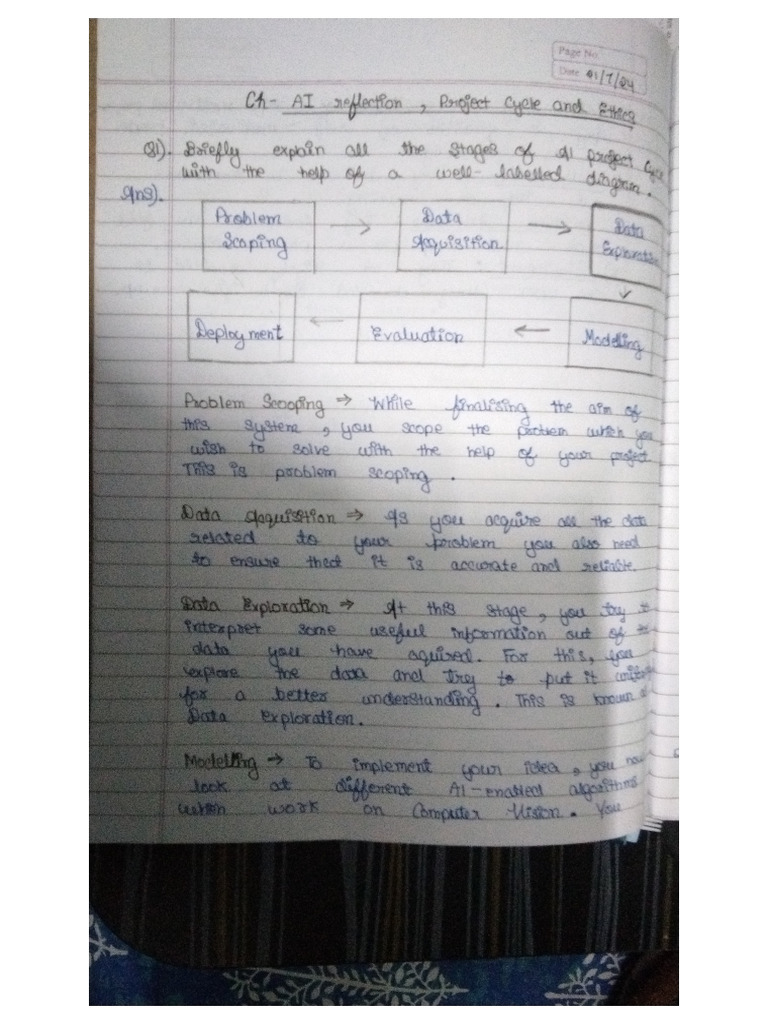 Page No.
Date 01/7/24
Ch- AI reflection, Project Cycle and Ethics
Q1). Briefly explain all the stages of AI project cycle
with the help of a well-labelled diagram.
Ans).
Problem Scoping
Data Acquisition
Data Exploration
Deployment
Evaluation
Modelling
Problem Scooping → While finalising the aim of
this system, you scope the problem which you
wish to solve with the help of your project
This is problem scoping.
Data Acquisition → As you acquire all the data
related to your problem you also need
to ensure that it is accurate and reliable
Data Exploration → At this stage, you try to
interpret some useful information out of the
data you have aquired. For this, you
explore the data and try to put it
for a better understanding. This is known
Data Exploration.
Modelling → To implement your idea, you now
look at different AI-enabled algorithms
which work on Computer Vision. You